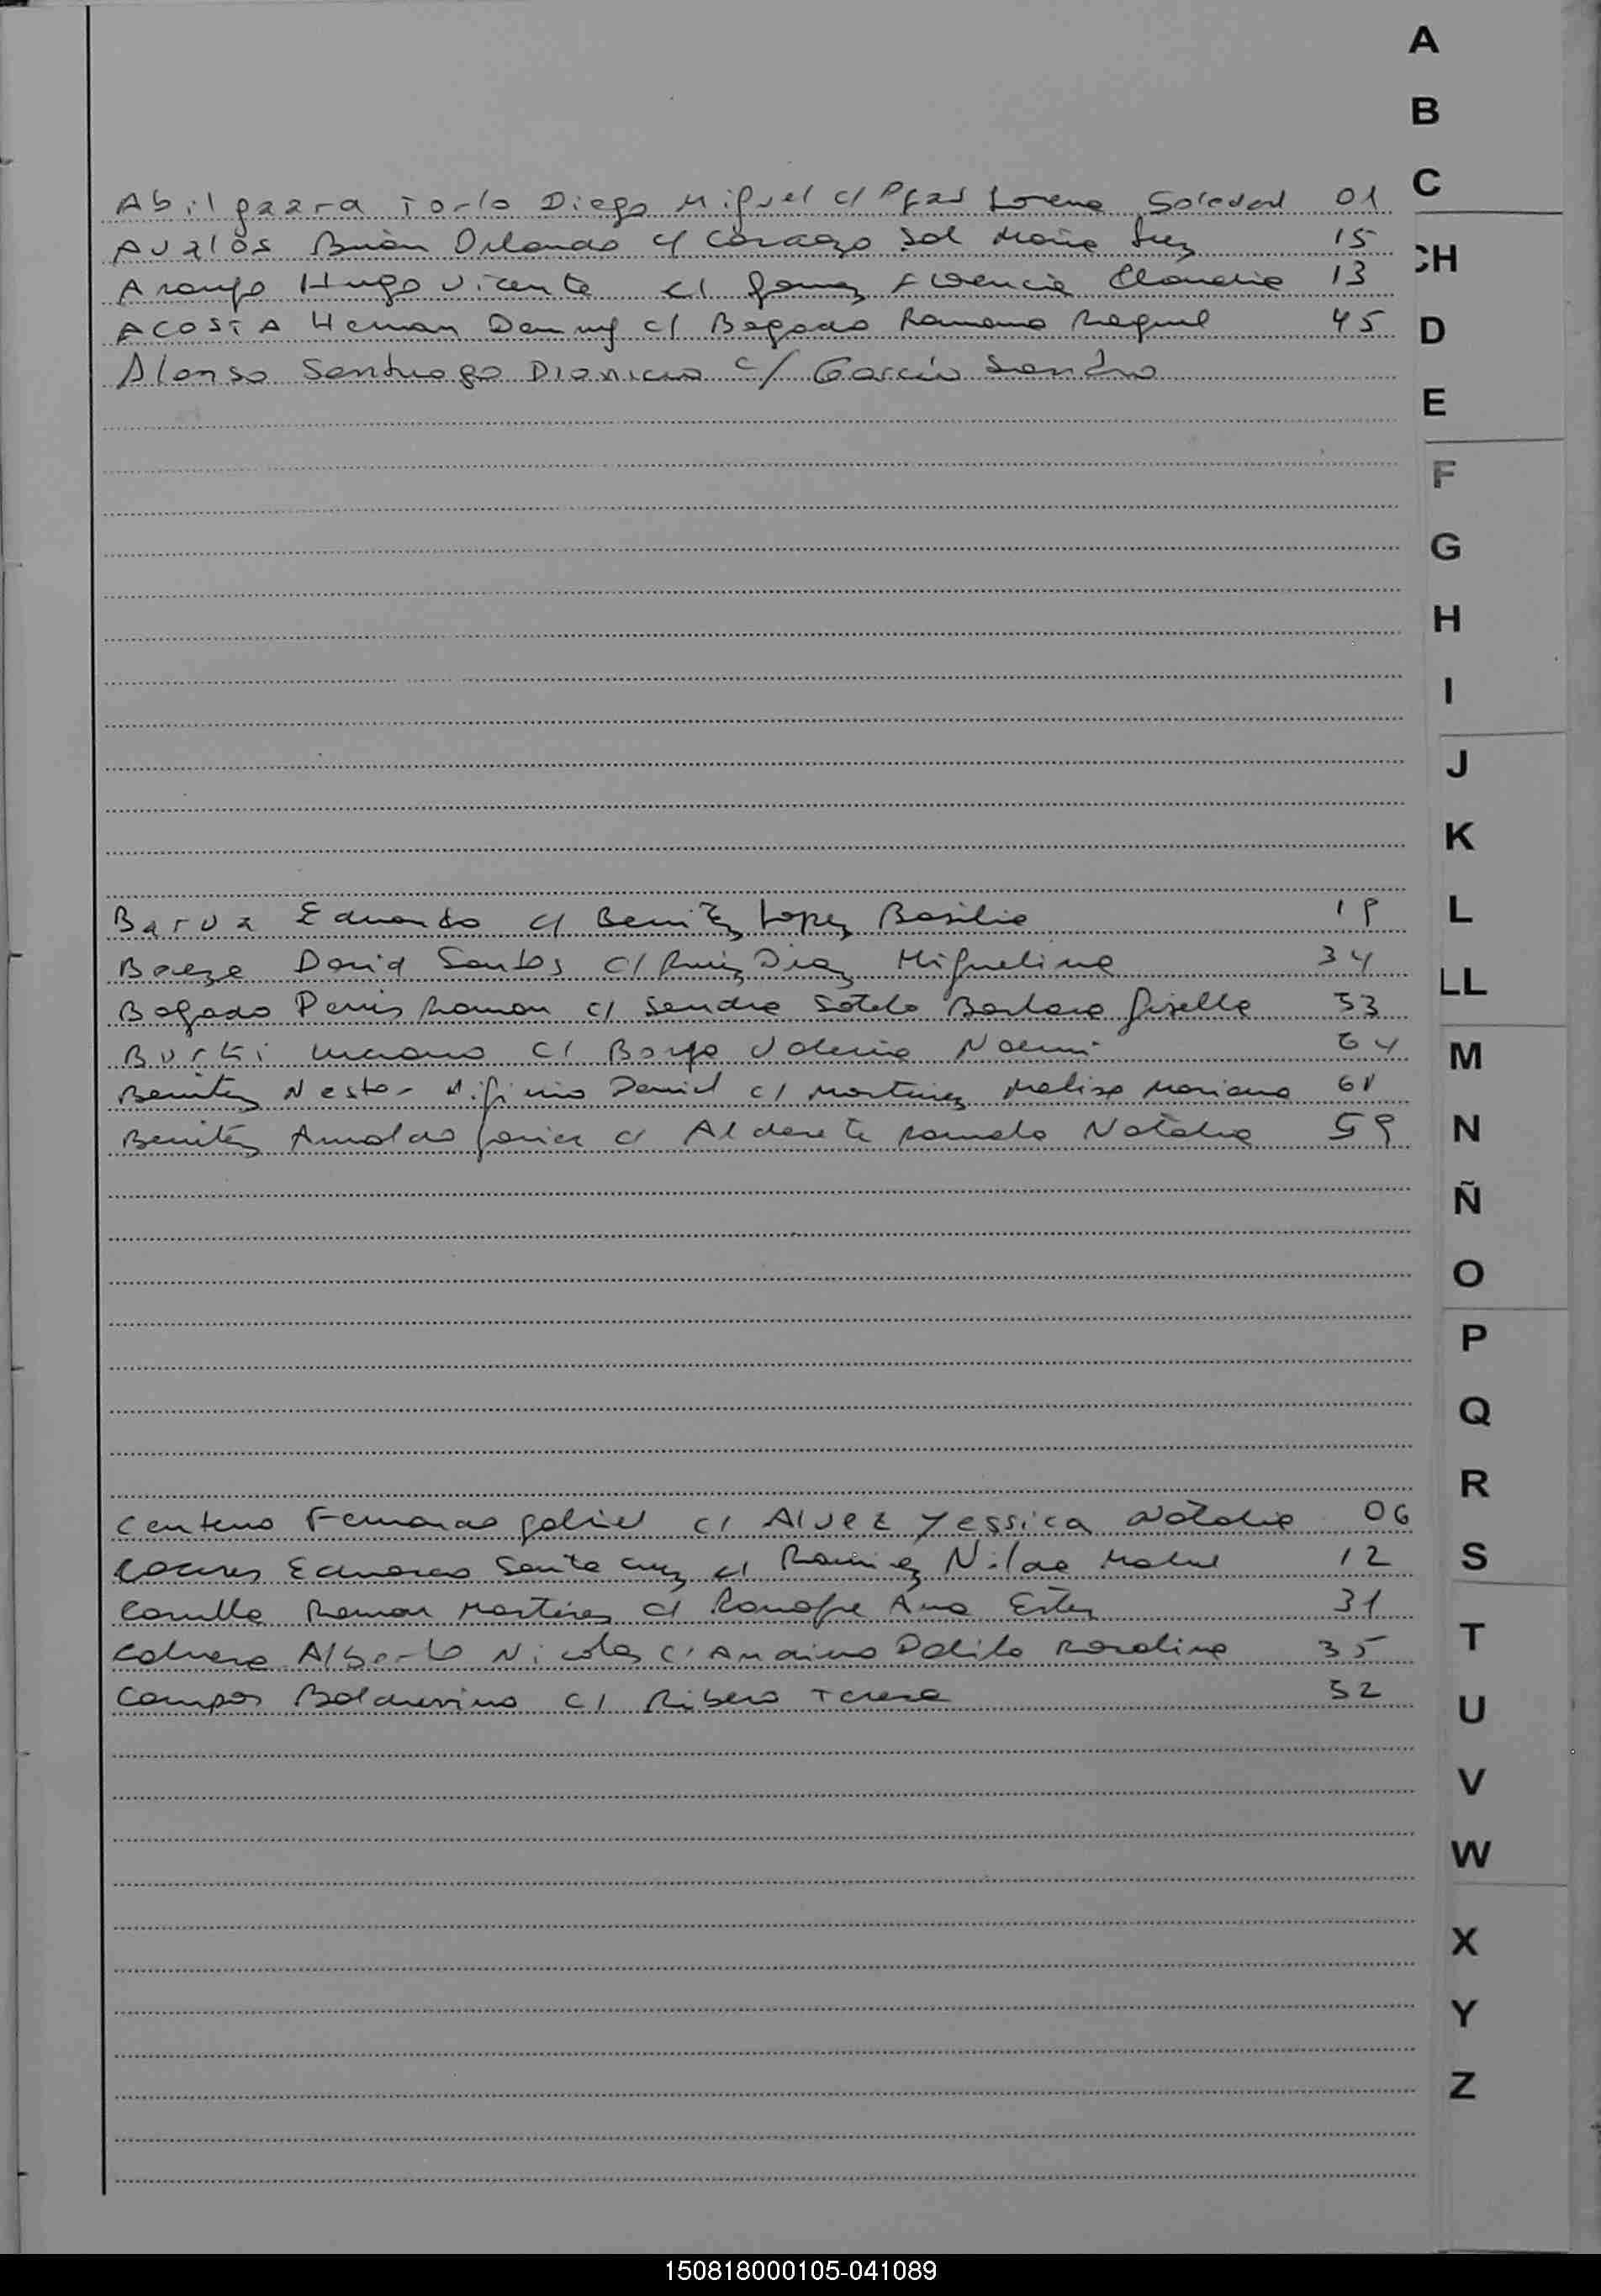 A
B
C
Abilgaara Torlo Diego Miguel c/ Lorena Soledad 01
Avalos Brian Orlando c/ Sol Maria Luz 15
CH
Araujo Hugo Vicente c/ Gomez Florencia Claudia 13
ACOSTA Hernan c/ Bogado Romano Raquel 45
D
Alonso Santiago Dionicio c/ Garcia Sandro
E
F
G
H
I
J
K
Barua Eduardo c/ Benitez Lopez Basilia 19
L
Baeza David Santos c/ Ruiz Diaz Miguelina 34
LL
Bogado Ramon c/ Sandra Sotelo Barbara Giselle 53
Burki Luciano c/ Valeria Noemi 64
M
Benitez Nestor Higinio Daniel c/ Martinez Melisa Mariana
Benitez Arnaldo Javier c/ Alderete Pamela Natalia 59
N
Ñ
O
P
Q
R
Centeno Fernando Gabriel c/ Alvez Yessica Natalia 06
Caceres Eduardo Santa Cruz c/ Ramirez Nilda Mabel 12
S
Ramon Martires c/ Ana Ester 31
T
Cabrera Alberto Nicolas c/ Dalila Rosalina 35
Campos Balduvino c/ Ribero Teresa 52
U
V
W
X
Y
Z
150818000105-041089